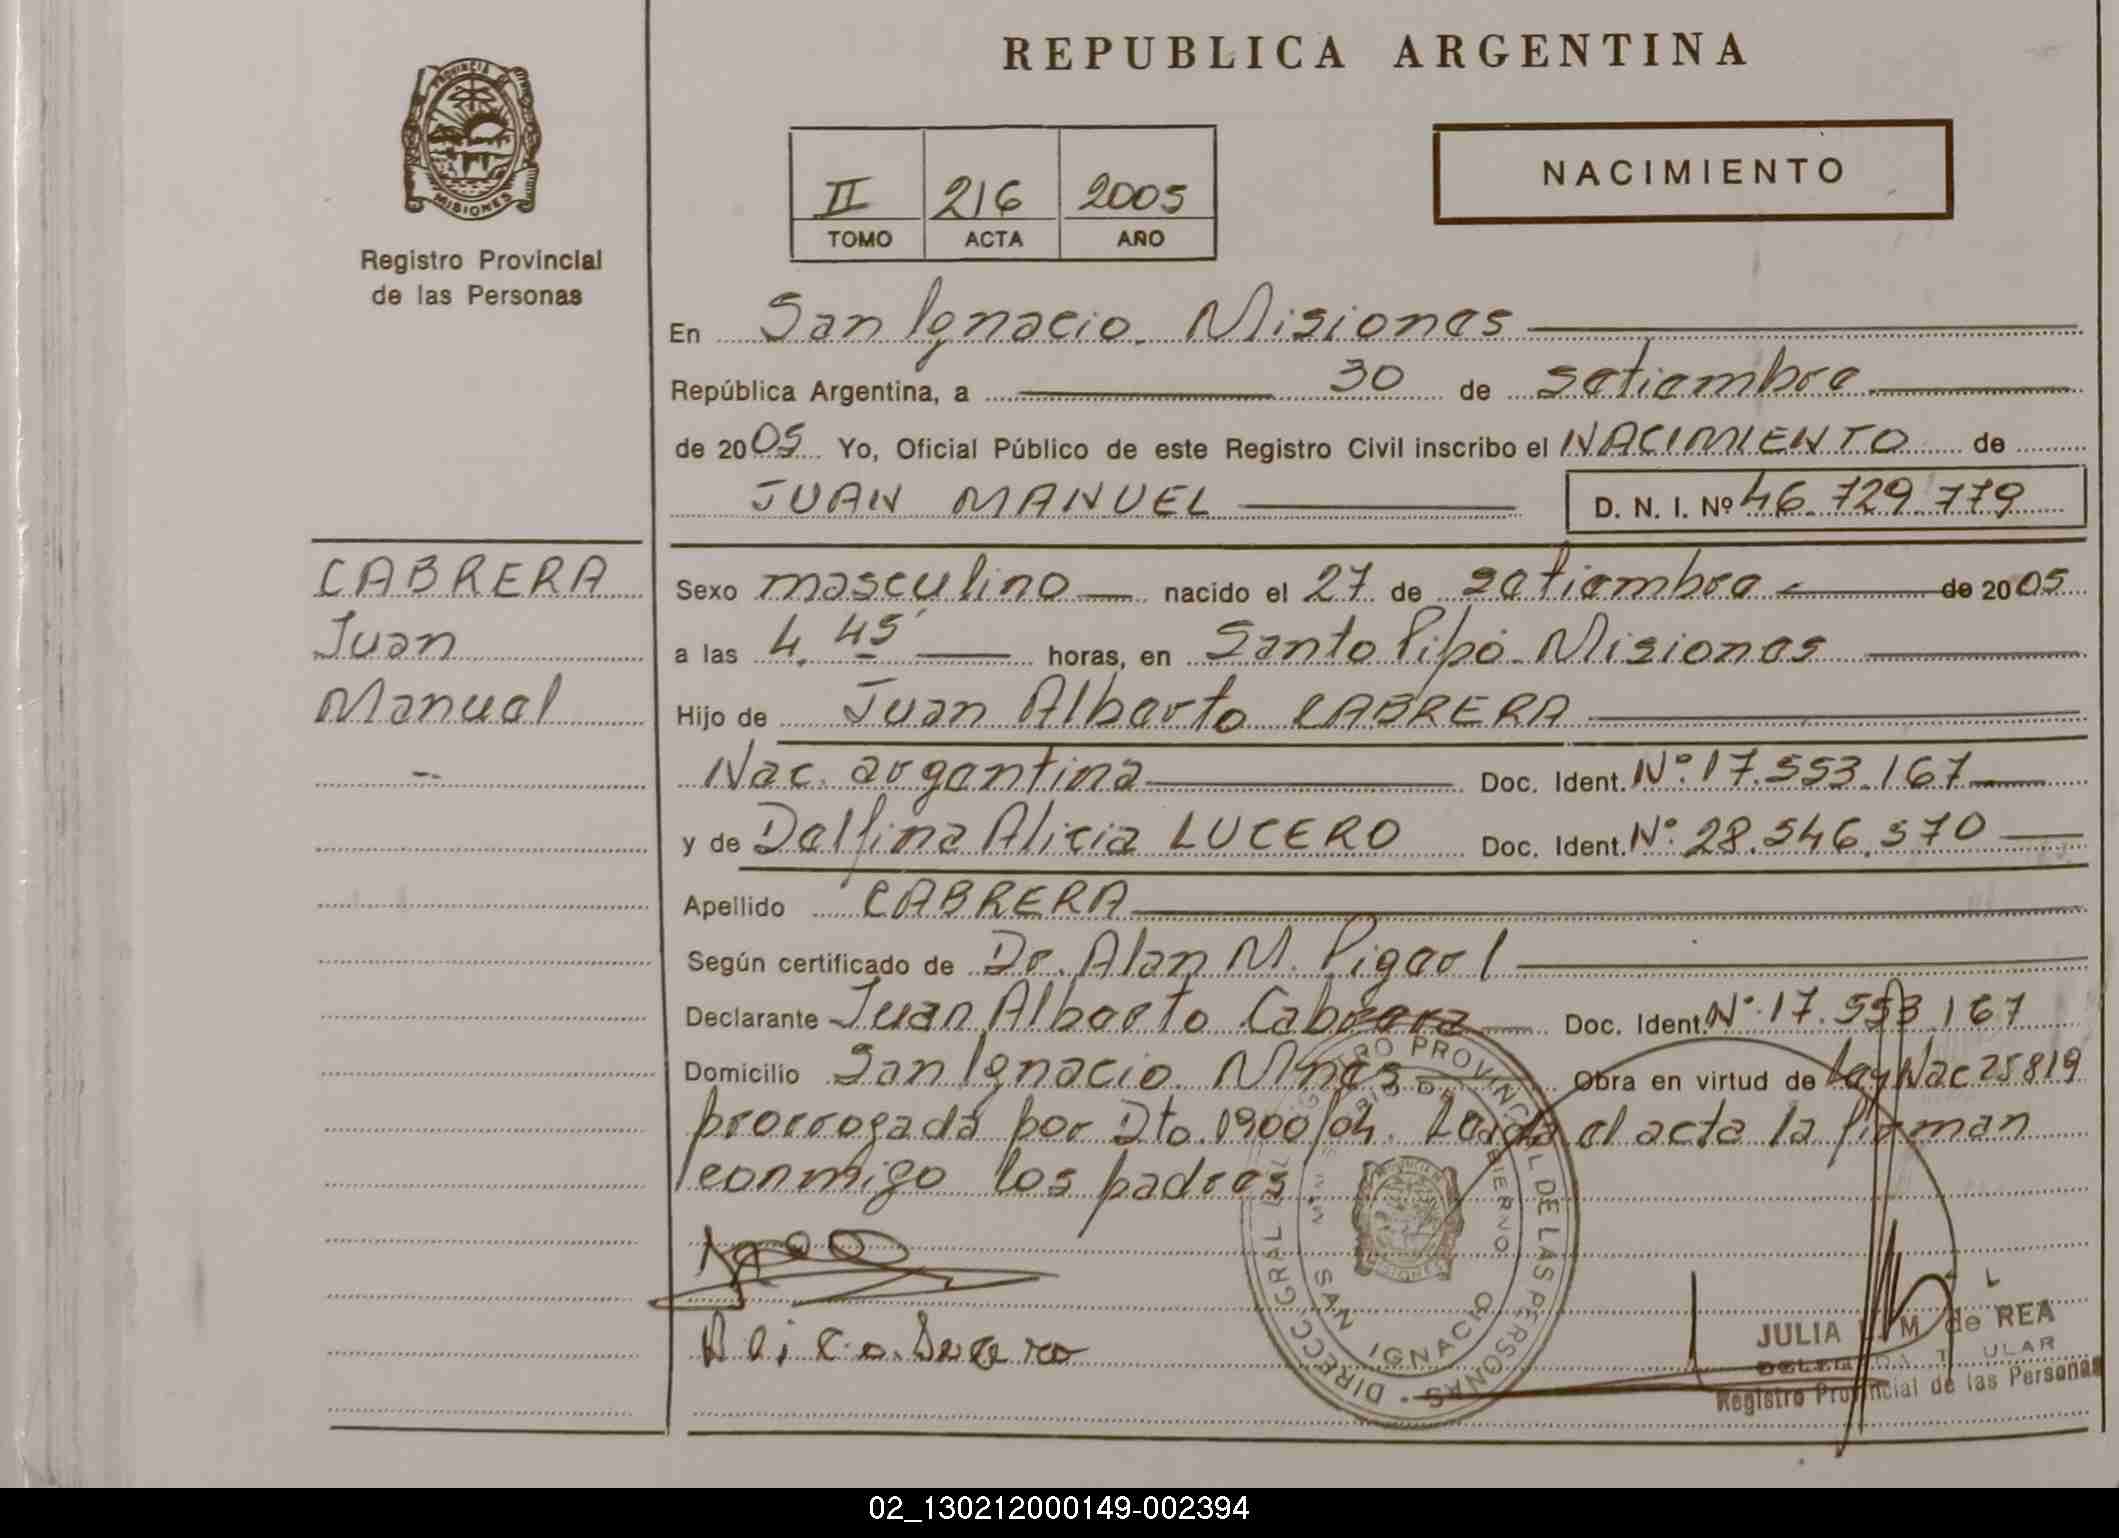 REPUBLICA ARGENTINA
PROVINCIA DE
MISIONES
Registro Provincial
de las Personas
II 216 2005
TOMO ACTA AÑO
NACIMIENTO
En San Ignacio. Misiones
República Argentina, a 30 de setiembre
de 2005 Yo, Oficial Público de este Registro Civil inscribo el NACIMIENTO de
JUAN MANUEL D. N. I. Nº 46.729.779
CABRERA
Juan
Manuel
Sexo masculino nacido el 27 de setiembre de 2005
a las 4.45 horas, en Santo Pipó. Misiones
Hijo de Juan Alberto CABRERA
Nac. argentina Doc. Ident. Nº.17.553.167
y de Delfina Alicia LUCERO Doc. Ident. Nº.28.546.570
Apellido CABRERA
Según certificado de Dr. Alan M.
Declarante Juan Alberto Cabrera Doc. Ident. Nº.17.553.167
Domicilio San Ignacio. Mnes. Obra en virtud de Ley Nac 25819
prorrogada por Dto. 1900/04. Leída el acta la firman
conmigo los padres
DIRECC. GRAL DEL REGISTRO PROVINCIAL DE LAS PERSONAS
SAN IGNACIO
JULIA M de REA
Registro Provincial de las Personas
02_130212000149-002394